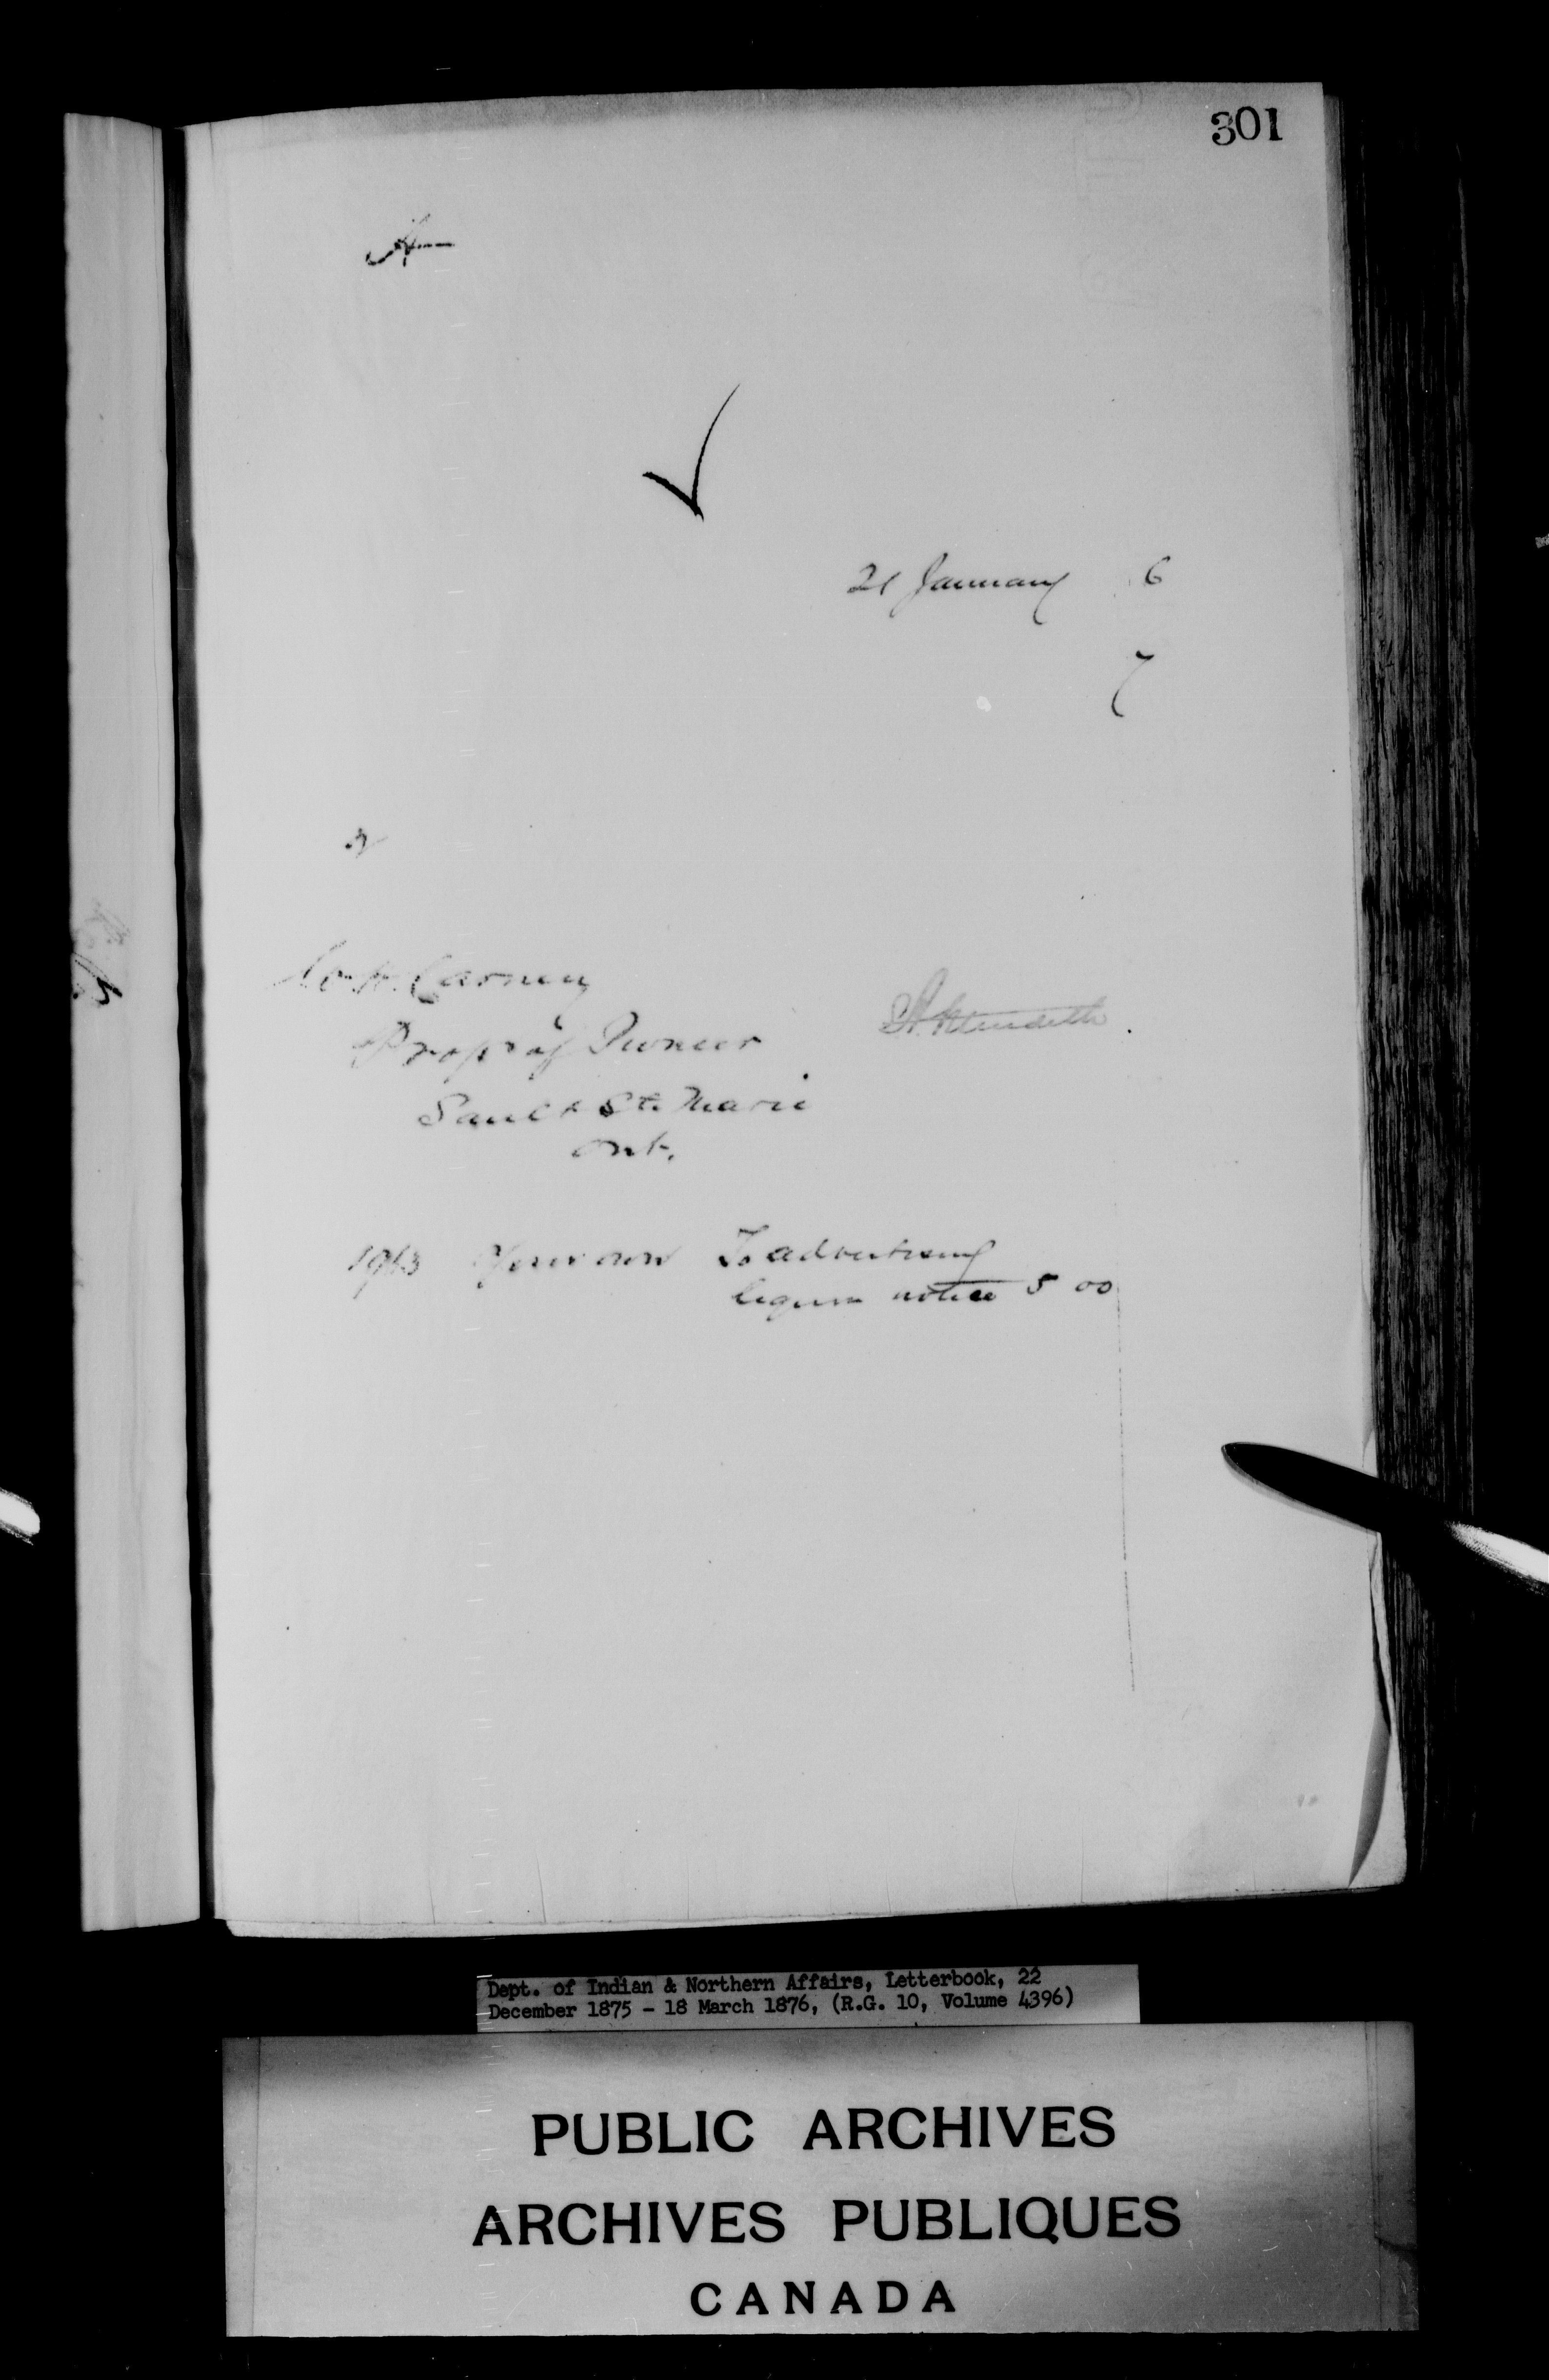 301
21 January 6
7
W. H. Carney
Propr of Pioneer
Sault Ste Marie
Ont.
1913 Your own To advertising
liquor notice 5 00
Dept. of Indian & Northern Affairs, Letterbook, 22
December 1875 - 18 March 1876, (R.G. 10, Volume 4396)
PUBLIC ARCHIVES
ARCHIVES PUBLIQUES
CANADA